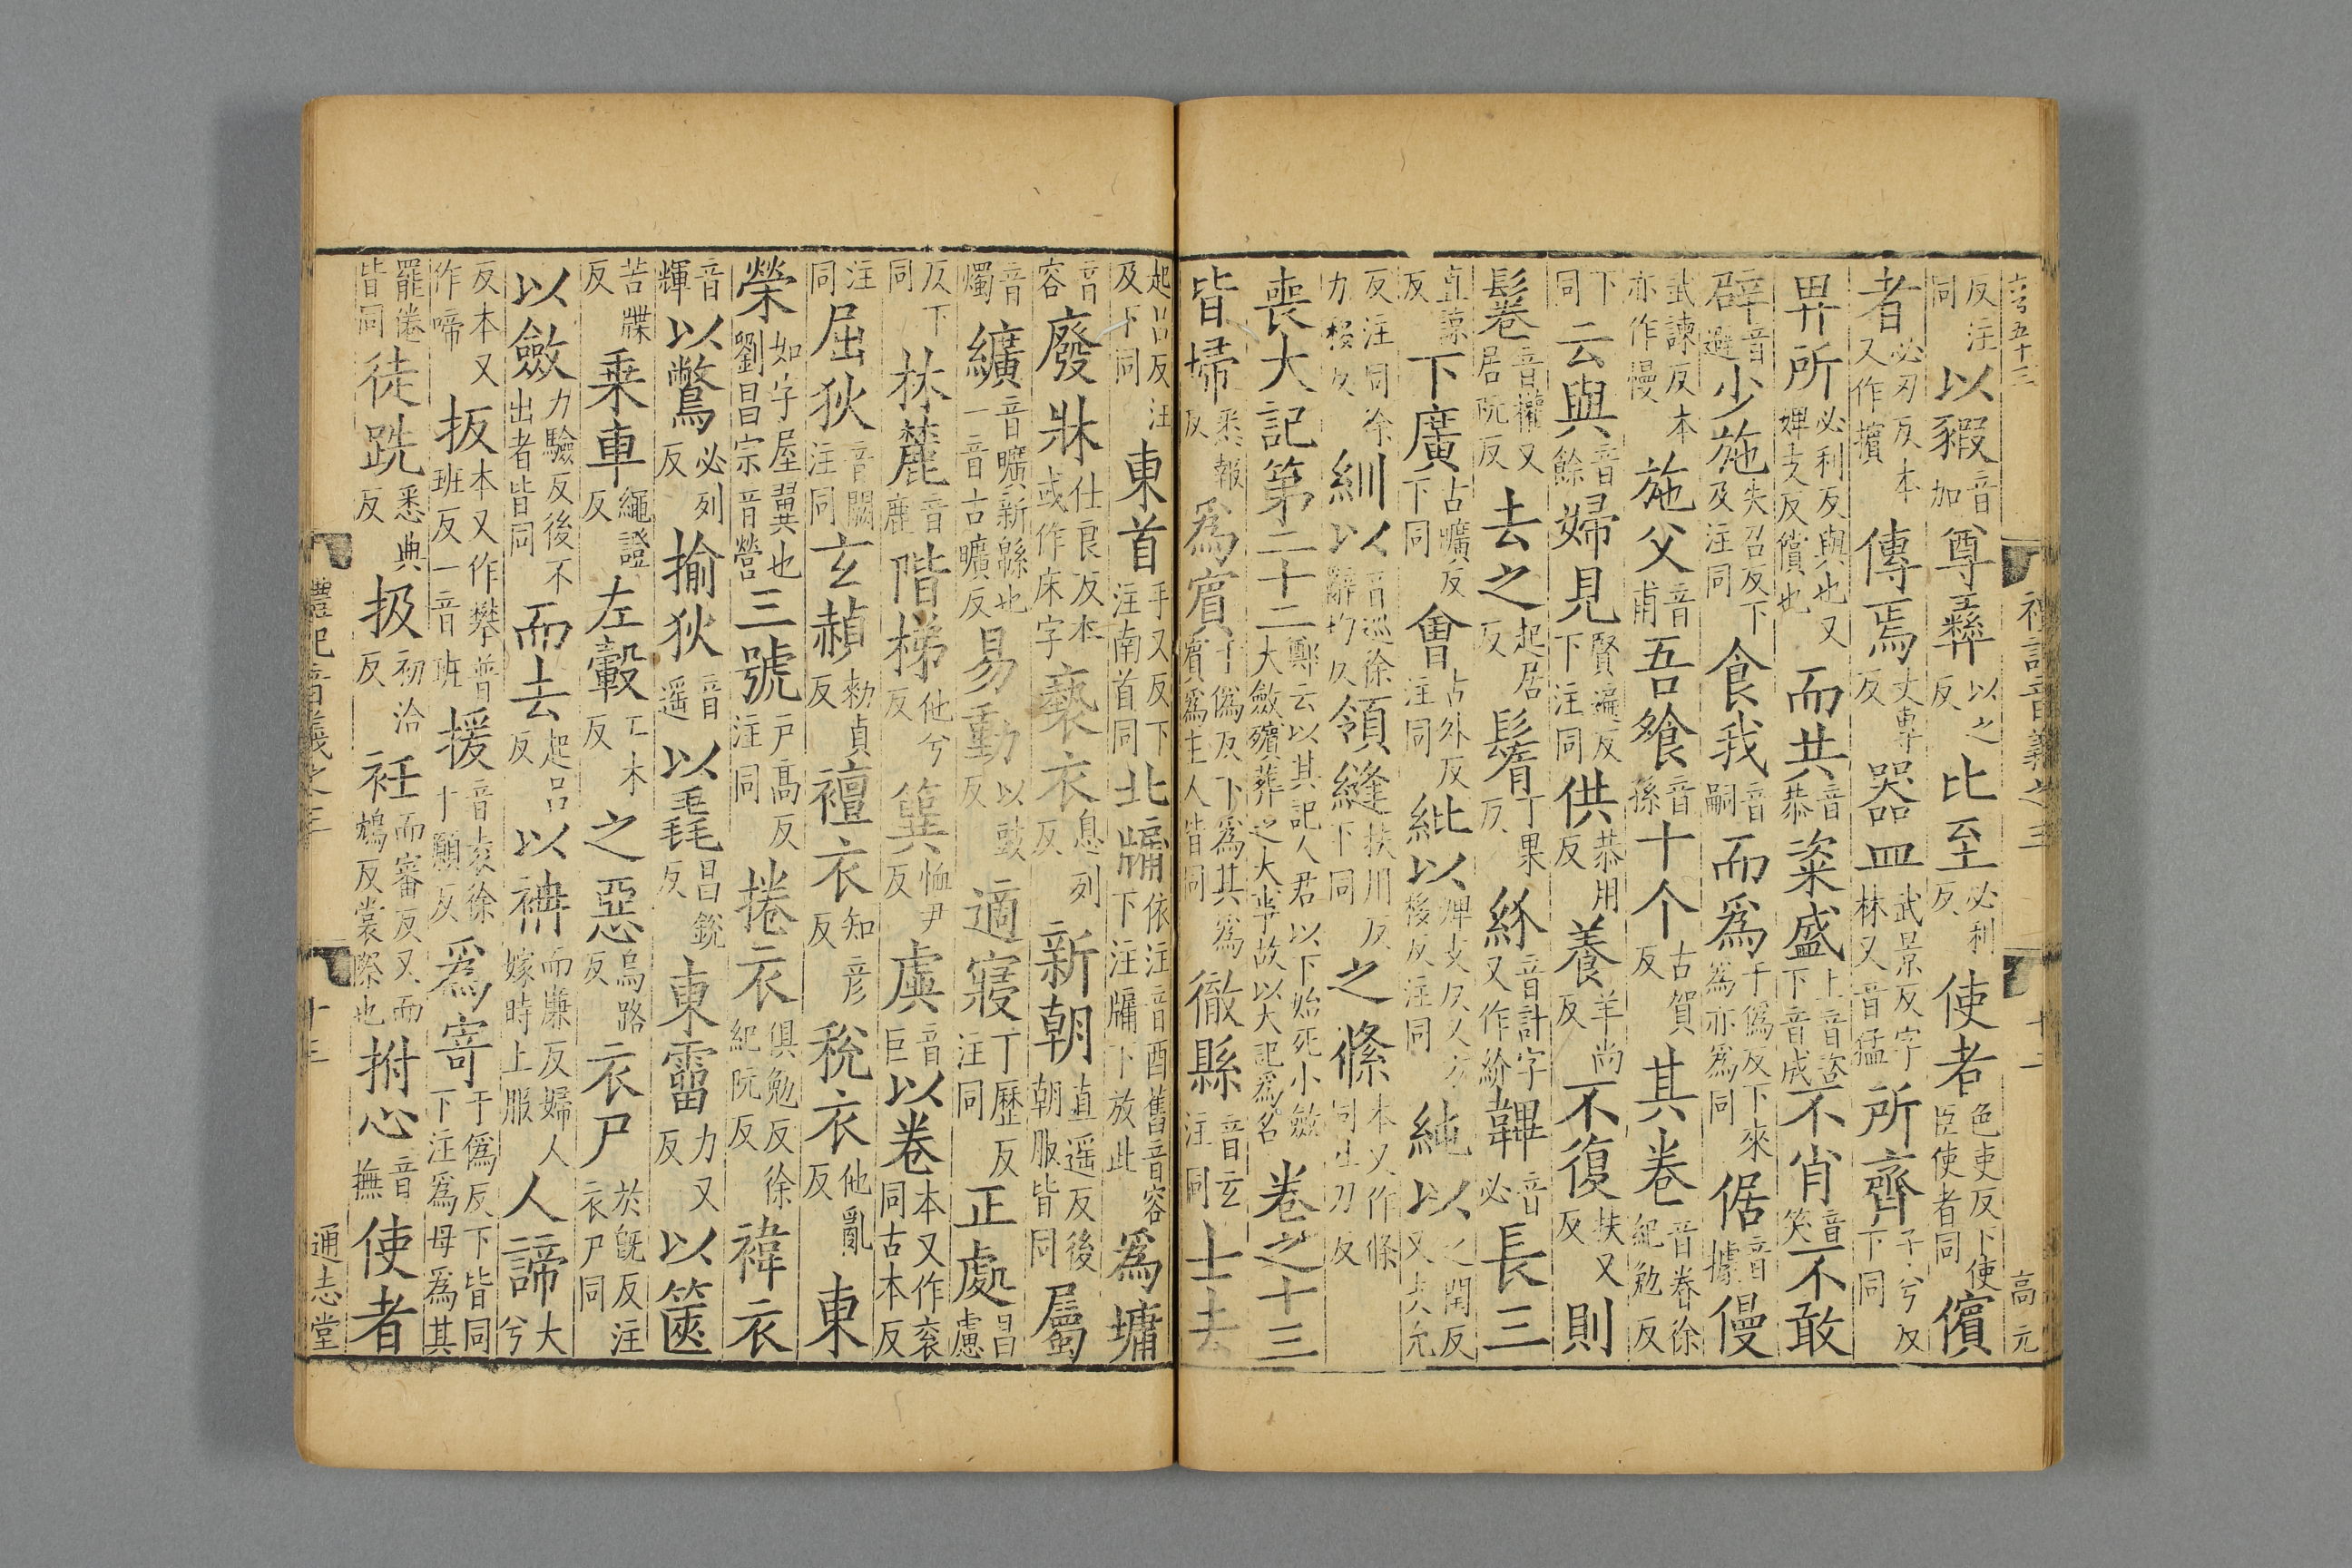 反注同以豭音加尊彝以之反比至必利反使者色吏反下使臣使者同儐
者必刃反本又作擯傳焉丈專反器皿武景反字林又音猛所齊子兮反下同
畀所必利反與也又婢支反償也而共音恭粢盛上音咨下音成不肖音笑不敢
辟音避少施失召反下及注同食我音嗣而爲于僞反下來爲亦爲同倨音據僈
武諫反本亦作慢施父音甫吾飧音孫十个古賀反其卷音眷徐紀勉反
下同云與音餘婦見賢遍反下注同供恭用反養羊尚反不復扶又反則
鬈音權又居阮反去之起居反鬌丁果反紒音計字又作紛韠音必長三
直諒反下廣古曠反下同會古外反注同紕以婢支反又方移反注同純以之閏反又支允
反注同徐力移反紃以音巡徐辭均反領縫扶用反下同之絛本又作條同吐刀反
喪大記第二十二鄭云以其記人君以下始死小斂大斂殯葬之大事故以大記爲名卷之十三
皆埽悉報反爲賓于僞反下爲其爲賓爲主人皆同徹縣音玄注同士去
起呂反注及下同東首手又反下注南首同北牖依注音酉舊音容下注牖下放此爲墉
音容廢牀仕良反本或作床字褻衣息列反新朝直遥反後朝服皆同屬
音燭纊音曠新緜也一音古曠反易動以豉反適寢丁歷反注同正處昌慮
反下同林麓音鹿階梯他兮反簨恤尹反虡音巨以卷本又作衮同古本反
注同屈狄音闕注同玄赬勑貞反襢衣知彦反稅衣他亂反東
榮如字屋翼也劉昌宗音營三號戶高反注同捲衣俱勉反徐紀阮反褘衣
音輝以鷩必列反揄狄音遥以毳昌銳反東霤力又反以篋
苦牒反乘車繩證反左轂工木反之惡烏路反衣尸於旣反注衣尸同
以斂力驗反後不出者皆同而去起呂反以袡而廉反婦人嫁時上服人諦大兮
反本又作啼扳本又作攀普班反一音班援音袁徐于願反爲寄于僞反下皆同下注爲母爲其
罷倦皆同徒跣悉典反扱初洽反衽而審反又而鴆反裳際也拊心音撫使者
禮記音義之三
十三
通志堂
十二
高元